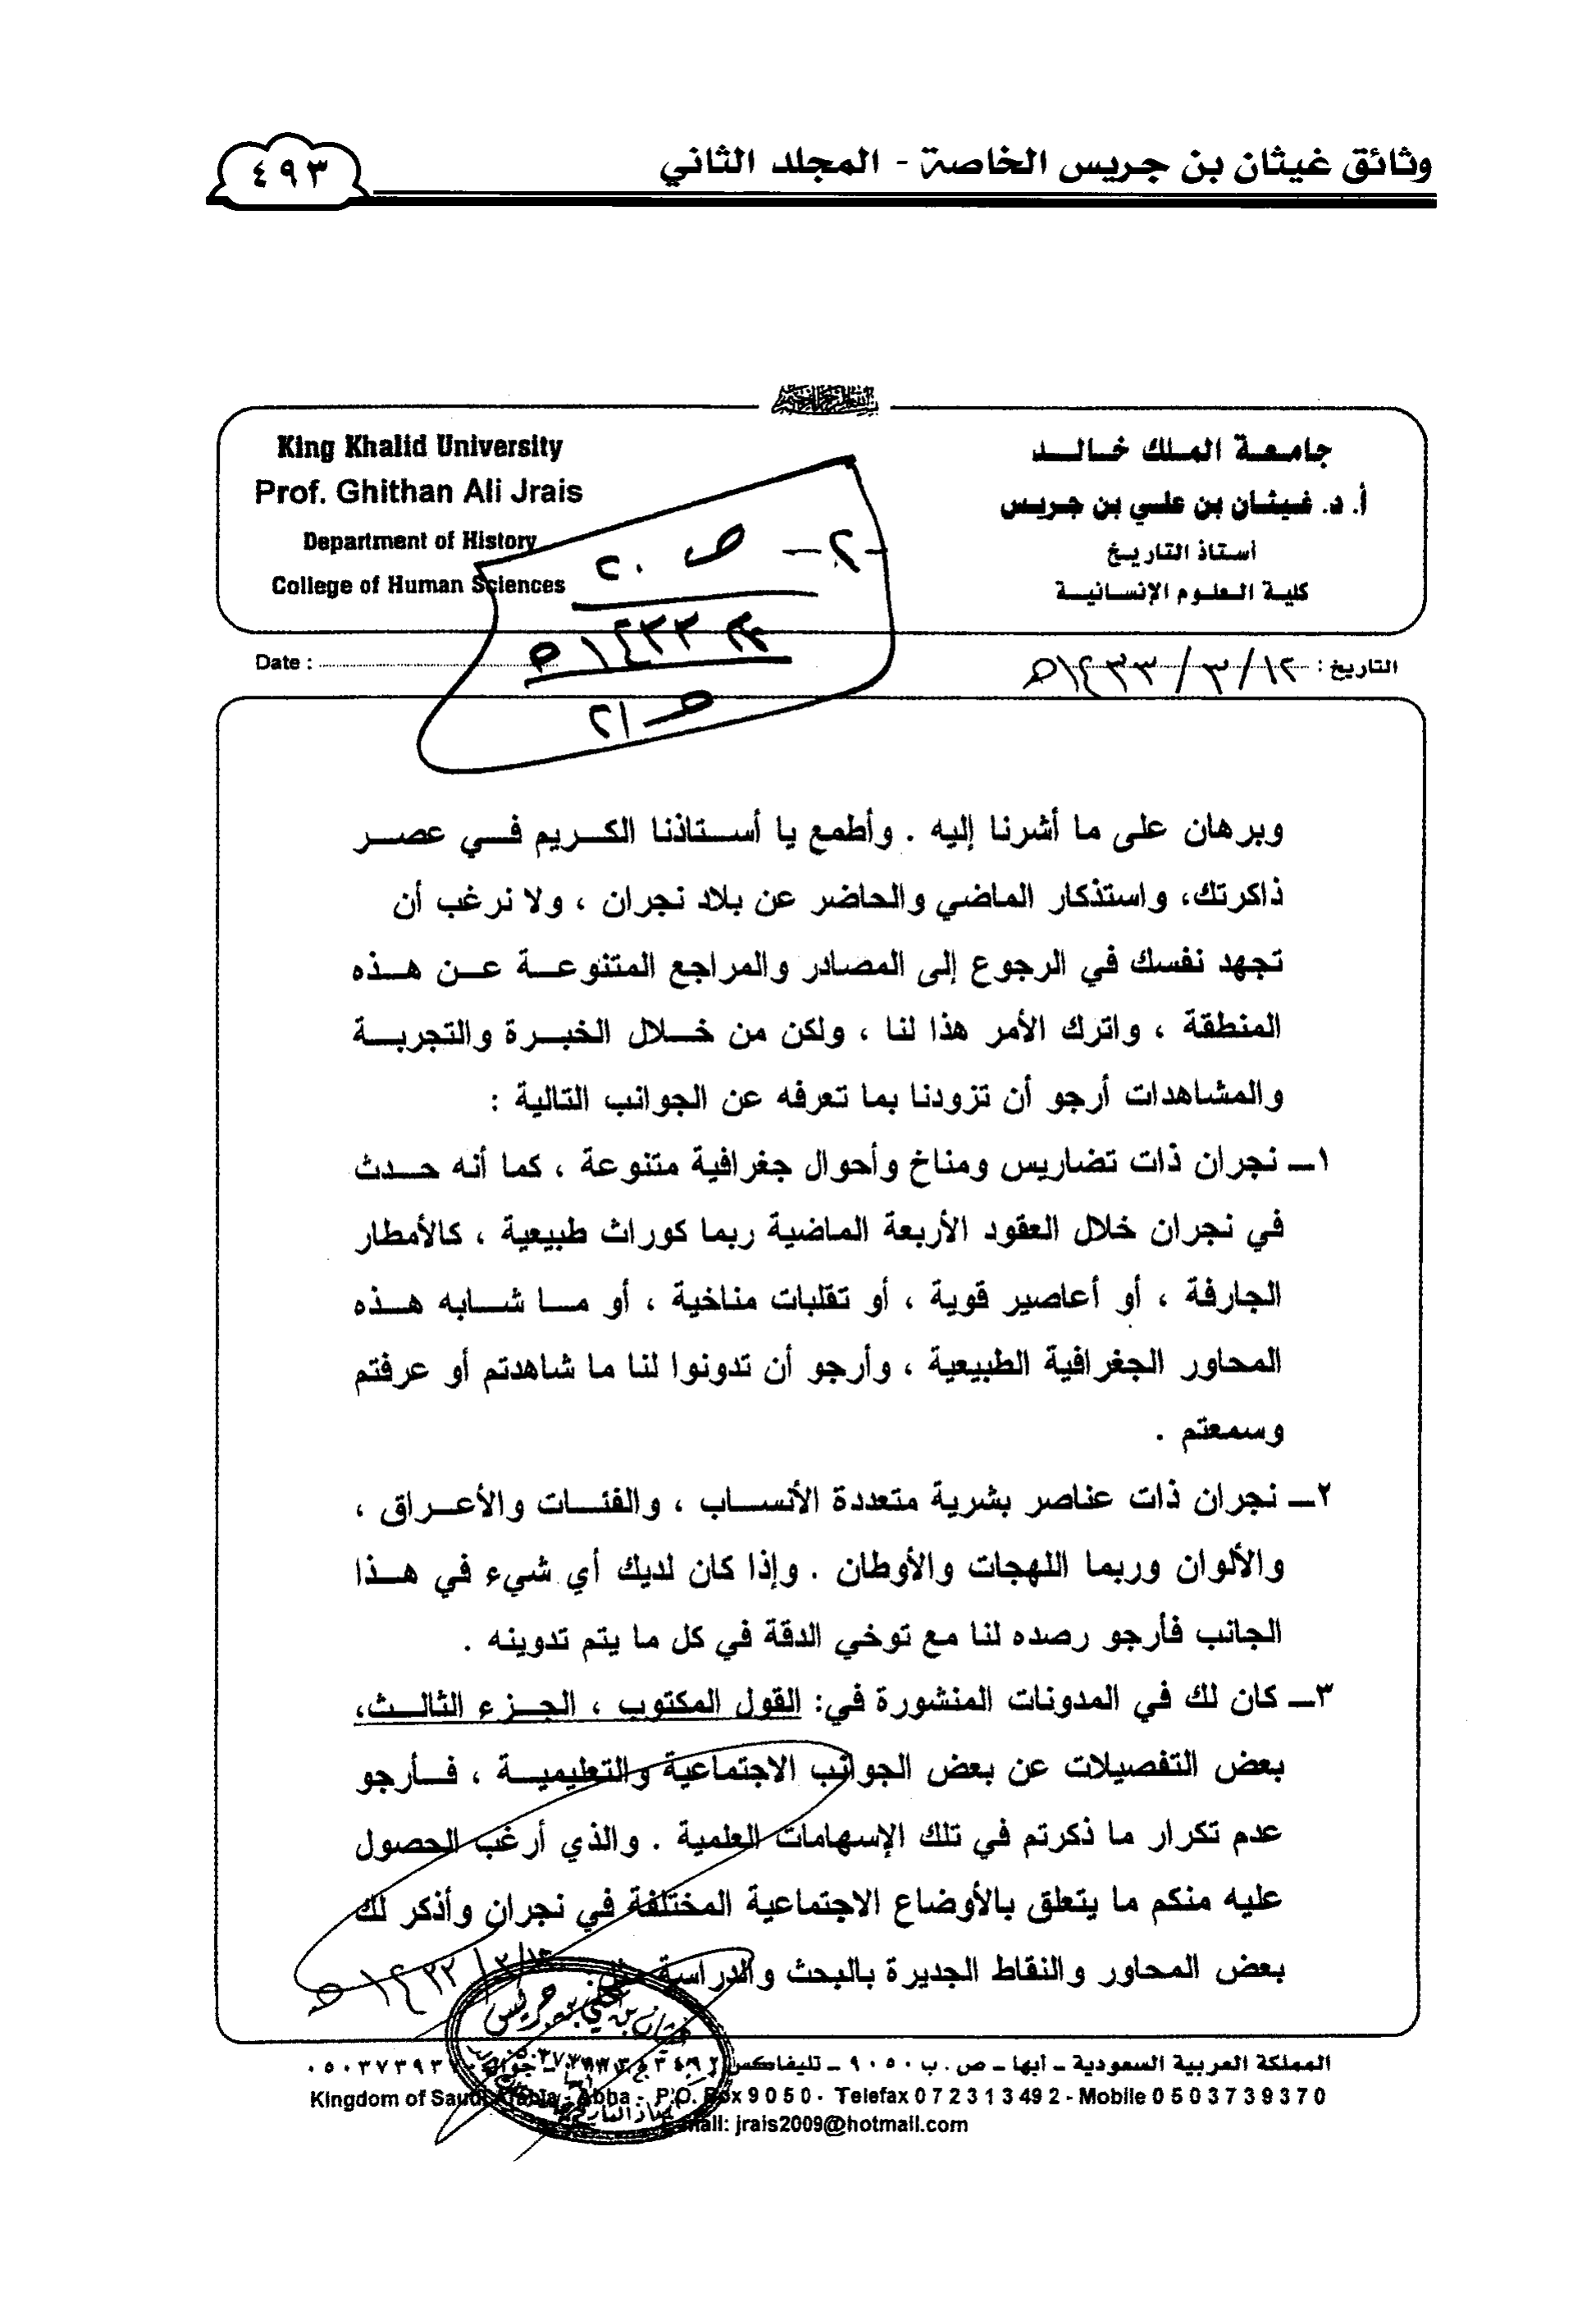 وثائق غيثان بن جريس الخاصة - المجلد الثاني
٤٩٣
جامعة الملك خالد
أ. د. غيثان بن علي بن جريس
أستاذ التاريخ
كلية العلوم الإنسانية
King Khalid University
Prof. Ghithan Ali Jrais
Department of History
College of Human Sciences
-٢- ص ٢٠
١٤٣٣هـ
ص ٢١
التاريخ : ١٢/٣/١٤٣٣هـ
Date :
وبرهان على ما أشرنا إليه . وأطمع يا أستاذنا الكريم في عصر
ذاكرتك، واستذكار الماضي والحاضر عن بلاد نجران ، ولا نرغب أن
تجهد نفسك في الرجوع إلى المصادر والمراجع المتنوعة عن هذه
المنطقة ، واترك الأمر هذا لنا ، ولكن من خلال الخبرة والتجربة
والمشاهدات أرجو أن تزودنا بما تعرفه عن الجوانب التالية :
١- نجران ذات تضاريس ومناخ وأحوال جغرافية متنوعة ، كما أنه حدث
في نجران خلال العقود الأربعة الماضية ربما كوراث طبيعية ، كالأمطار
الجارفة ، أو أعاصير قوية ، أو تقلبات مناخية ، أو ما شابه هذه
المحاور الجغرافية الطبيعية ، وأرجو أن تدونوا لنا ما شاهدتم أو عرفتم
وسمعتم .
٢- نجران ذات عناصر بشرية متعددة الأنساب ، والفئات والأعراق ،
والألوان وربما اللهجات والأوطان . وإذا كان لديك أي شيء في هذا
الجانب فأرجو رصده لنا مع توخي الدقة في كل ما يتم تدوينه .
٣- كان لك في المدونات المنشورة في: القول المكتوب ، الجزء الثالث،
بعض التفصيلات عن بعض الجوانب الاجتماعية والتعليمية ، فأرجو
عدم تكرار ما ذكرتم في تلك الإسهامات العلمية . والذي أرغب الحصول
عليه منكم ما يتعلق بالأوضاع الاجتماعية المختلفة في نجران وأذكر لك
بعض المحاور والنقاط الجديرة بالبحث والدراسة
غيثان بن علي بن جريس
المملكة العربية السعودية - أبها - ص . ب ٩٠٥٠ - تليفاكس جوال ٠٥٠٣٧٣٩٣٧٠
Kingdom of Saudi Arabia - Abha - P.O. Box 9050 - Telefax 072313492 - Mobile 0503739370
jrais2009@hotmail.com